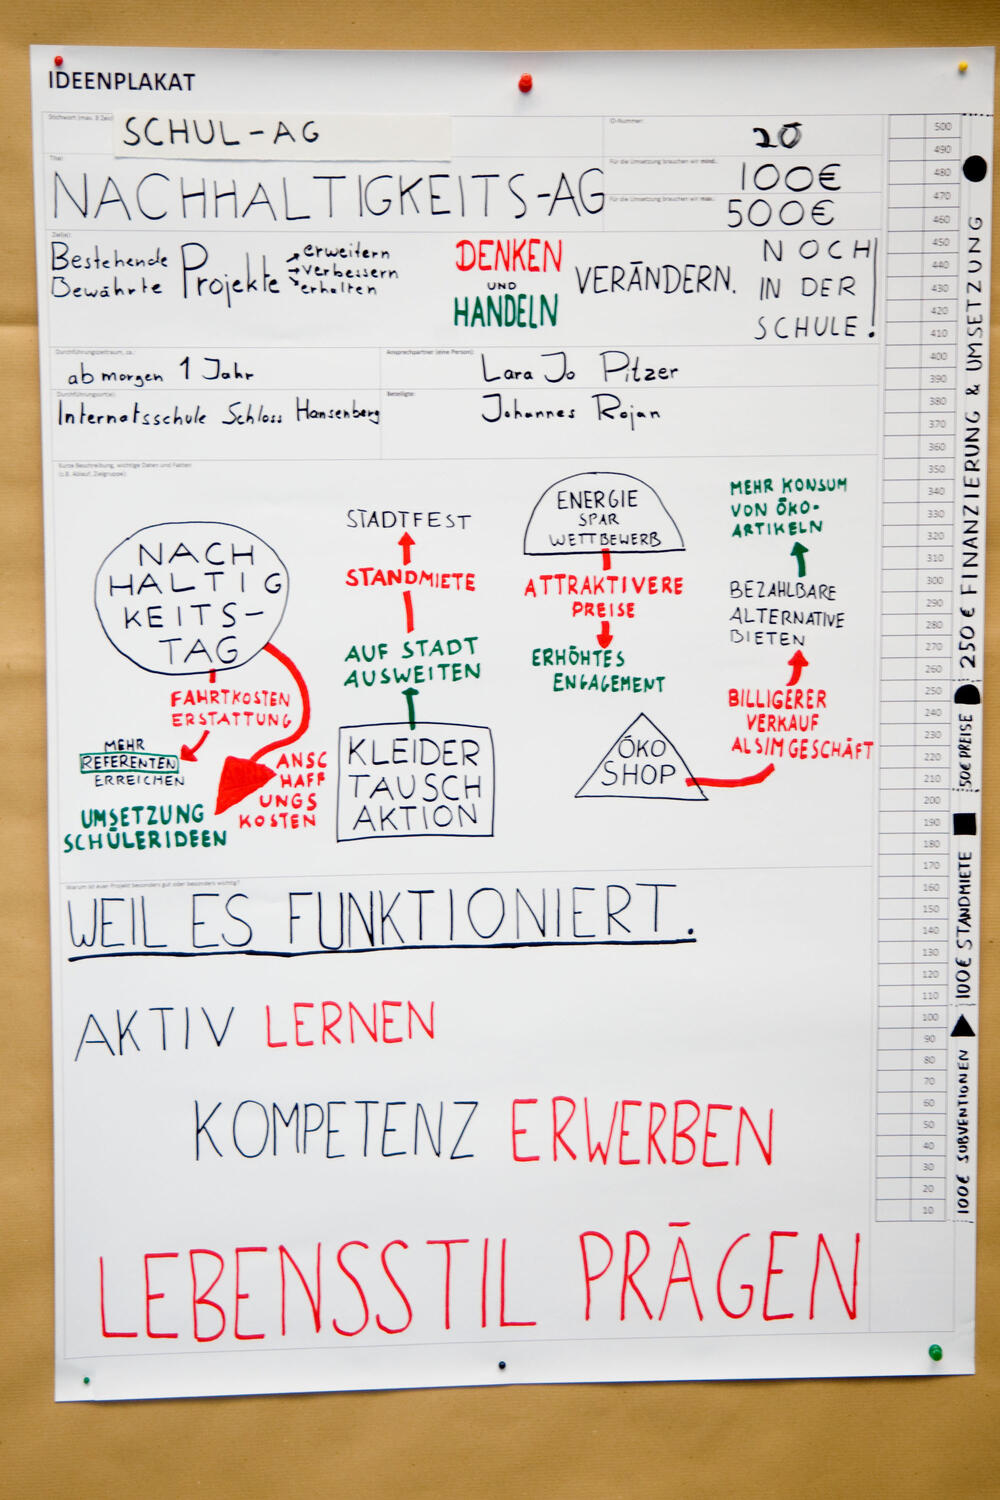 IDEENPLAKAT
Stichwort (max. 3
SCHUL-AG
ID-Nummer:
20
Titel:
NACHHALTIGKEITS-AG
Für die Umsetzung brauchen wir mind.:
100€
Für die Umsetzung brauchen wir max.:
500€
Ziel(e):
Bestehende
Bewährte
Projekte
erweitern
verbessern
erhalten
DENKEN
UND
HANDELN
VERÄNDERN.
NOCH
IN DER
SCHULE!
Durchführungszeitraum, ca.:
ab morgen 1 Jahr
Ansprechpartner (eine Person):
Lara Jo Pitzer
Durchführungsort(e):
Internatsschule Schloss Hansenberg
Beteiligte:
Johannes Rojan
Kurze Beschreibung, wichtige Daten und Fakten
(z.B. Ablauf, Zielgruppe):
NACH
HALTIG
KEITS-
TAG
FAHRTKOSTEN
ERSTATTUNG
MEHR
REFERENTEN
ERREICHEN
ANSC
HAFF
UNGS
KOSTEN
UMSETZUNG
SCHÜLERIDEEN
STADTFEST
STANDMIETE
AUF STADT
AUSWEITEN
KLEIDER
TAUSCH
AKTION
ENERGIE
SPAR
WETTBEWERB
ATTRAKTIVERE
PREISE
ERHÖHTES
ENGAGEMENT
MEHR KONSUM
VON ÖKO-
ARTIKELN
BEZAHLBARE
ALTERNATIVE
BIETEN
BILLIGERER
VERKAUF
ALS IM GESCHÄFT
ÖKO
SHOP
Warum ist euer Projekt besonders gut oder besonders wichtig?
WEIL ES FUNKTIONIERT.
AKTIV LERNEN
KOMPETENZ ERWERBEN
LEBENSSTIL PRÄGEN
500
490
480
470
460
450
440
430
420
410
400
390
380
370
360
350
340
330
320
310
300
290
280
270
260
250
240
230
220
210
200
190
180
170
160
150
140
130
120
110
100
90
80
70
60
50
40
30
20
10
250€ FINANZIERUNG & UMSETZUNG
50€ PREISE
100€ STANDMIETE
100€ SUBVENTIONEN